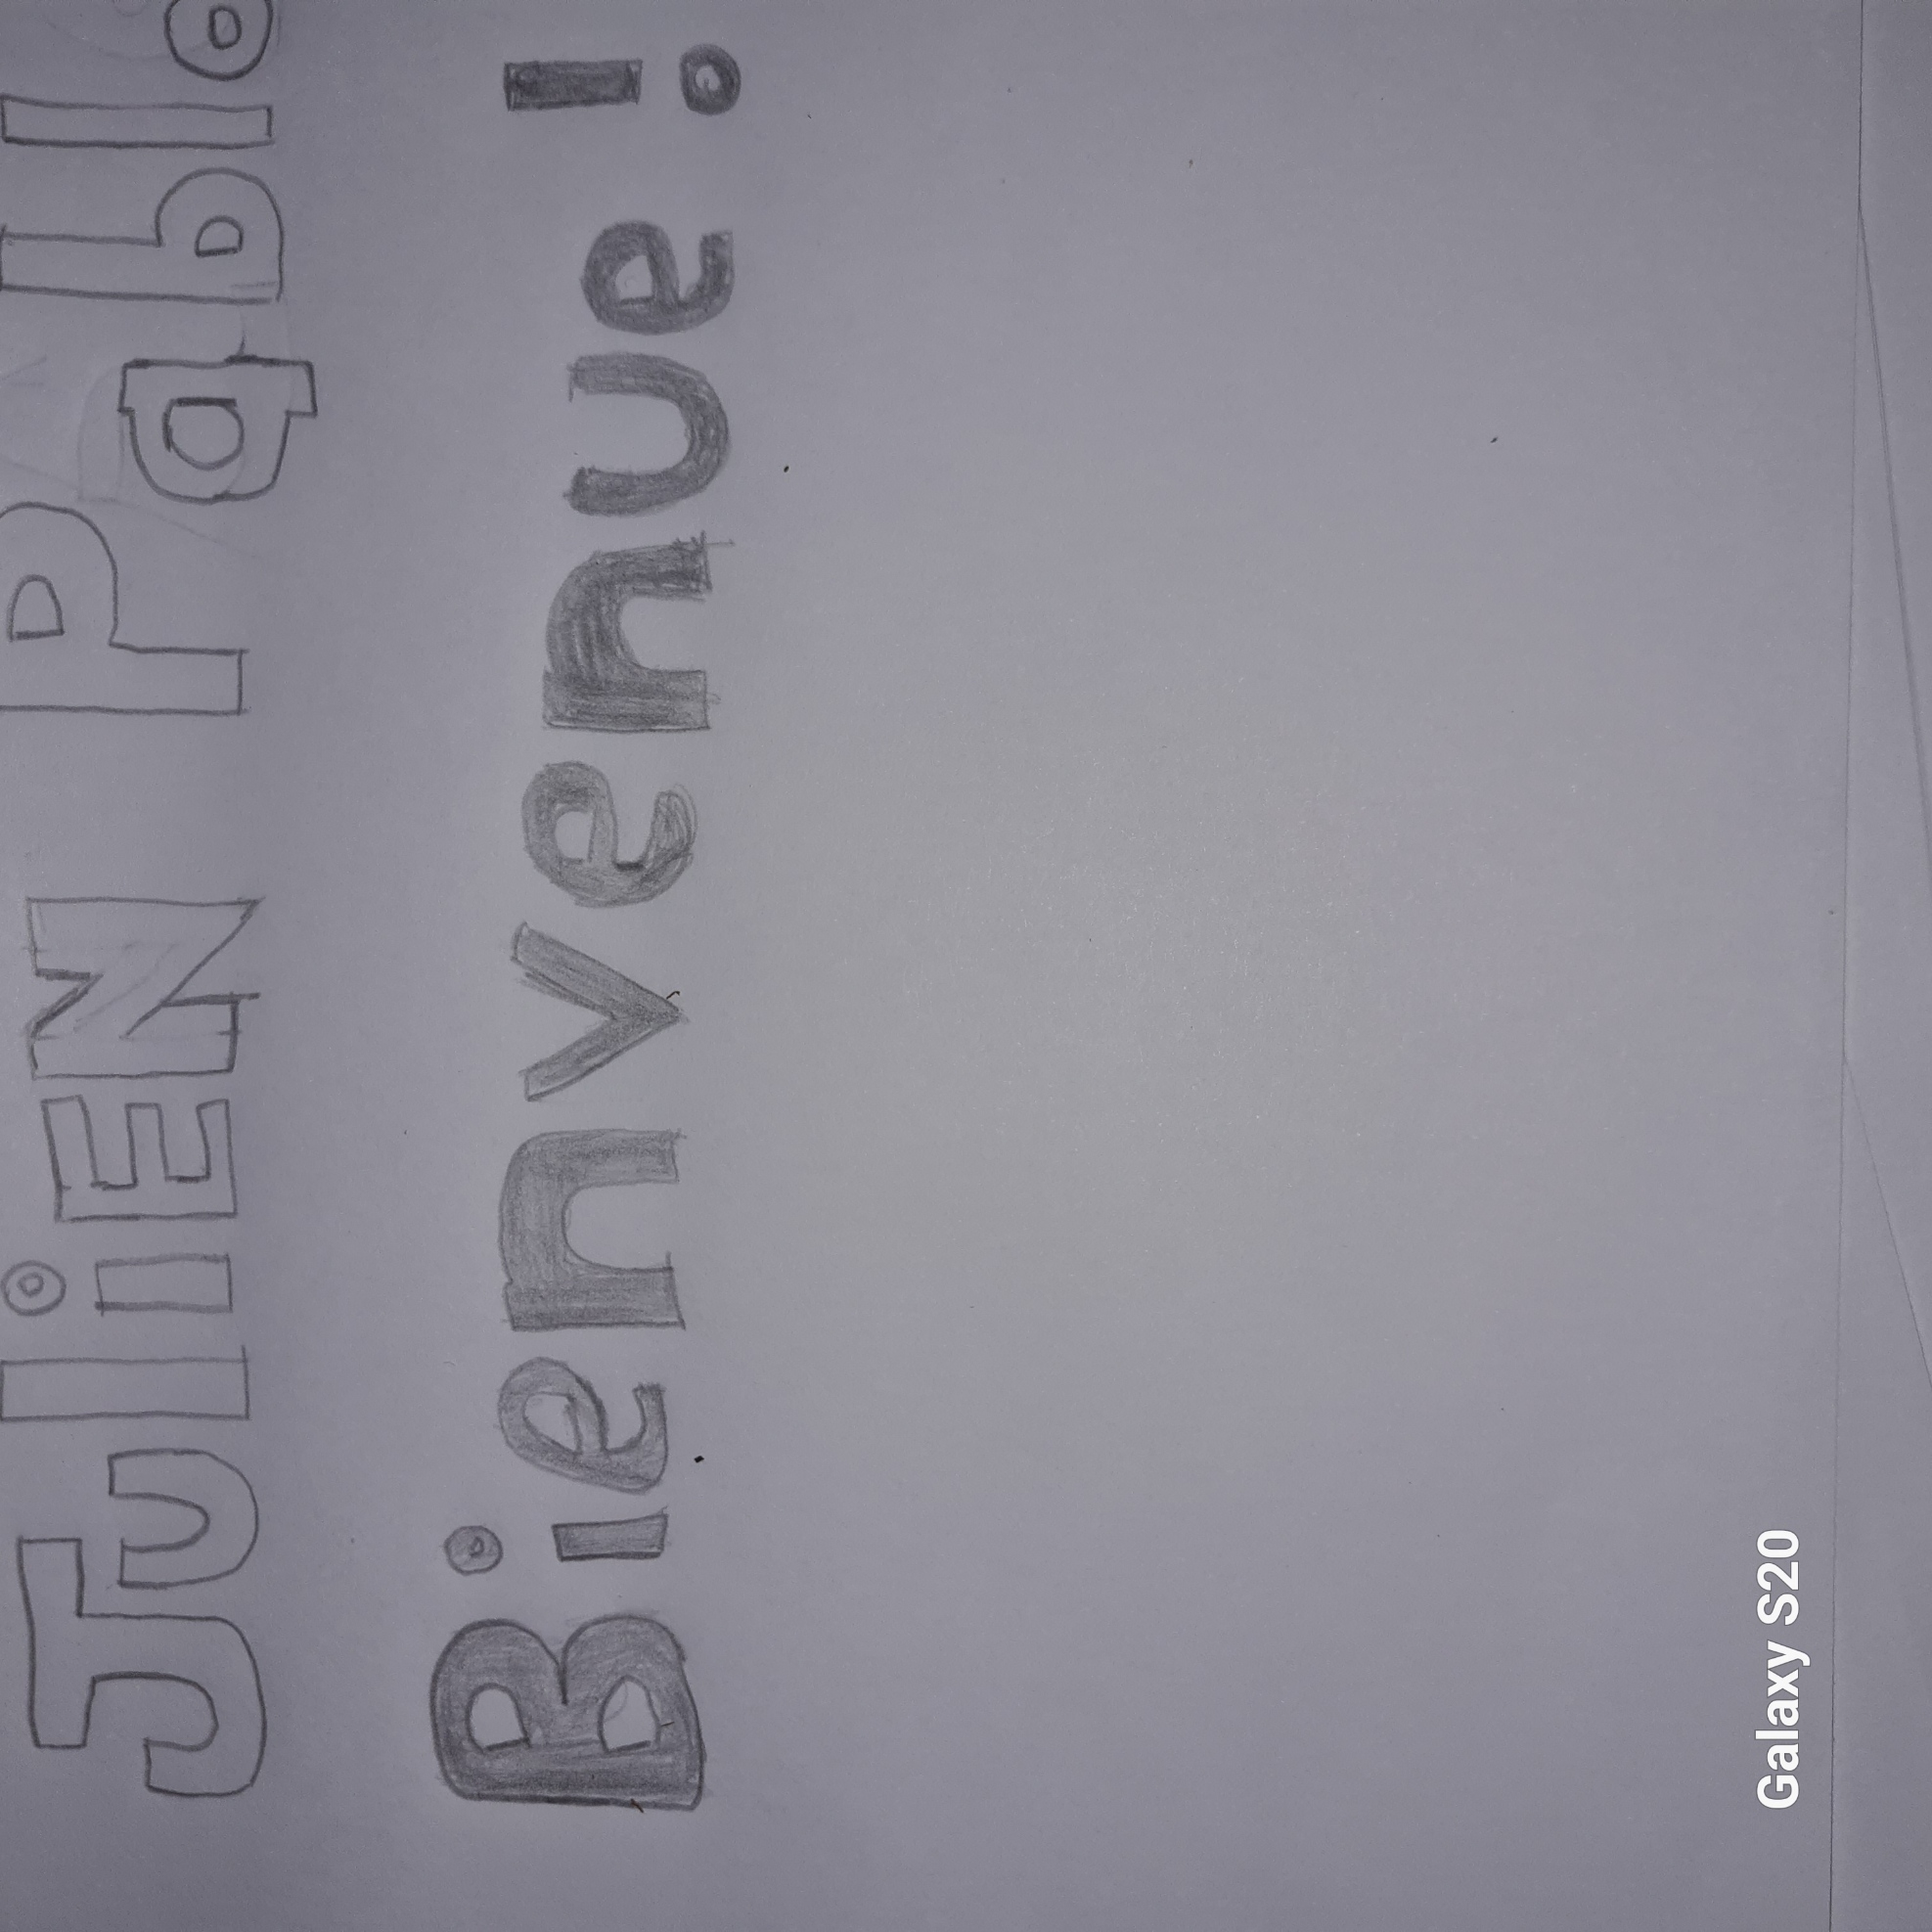 JuliEN Pablo
Bienvenue !
Galaxy S20